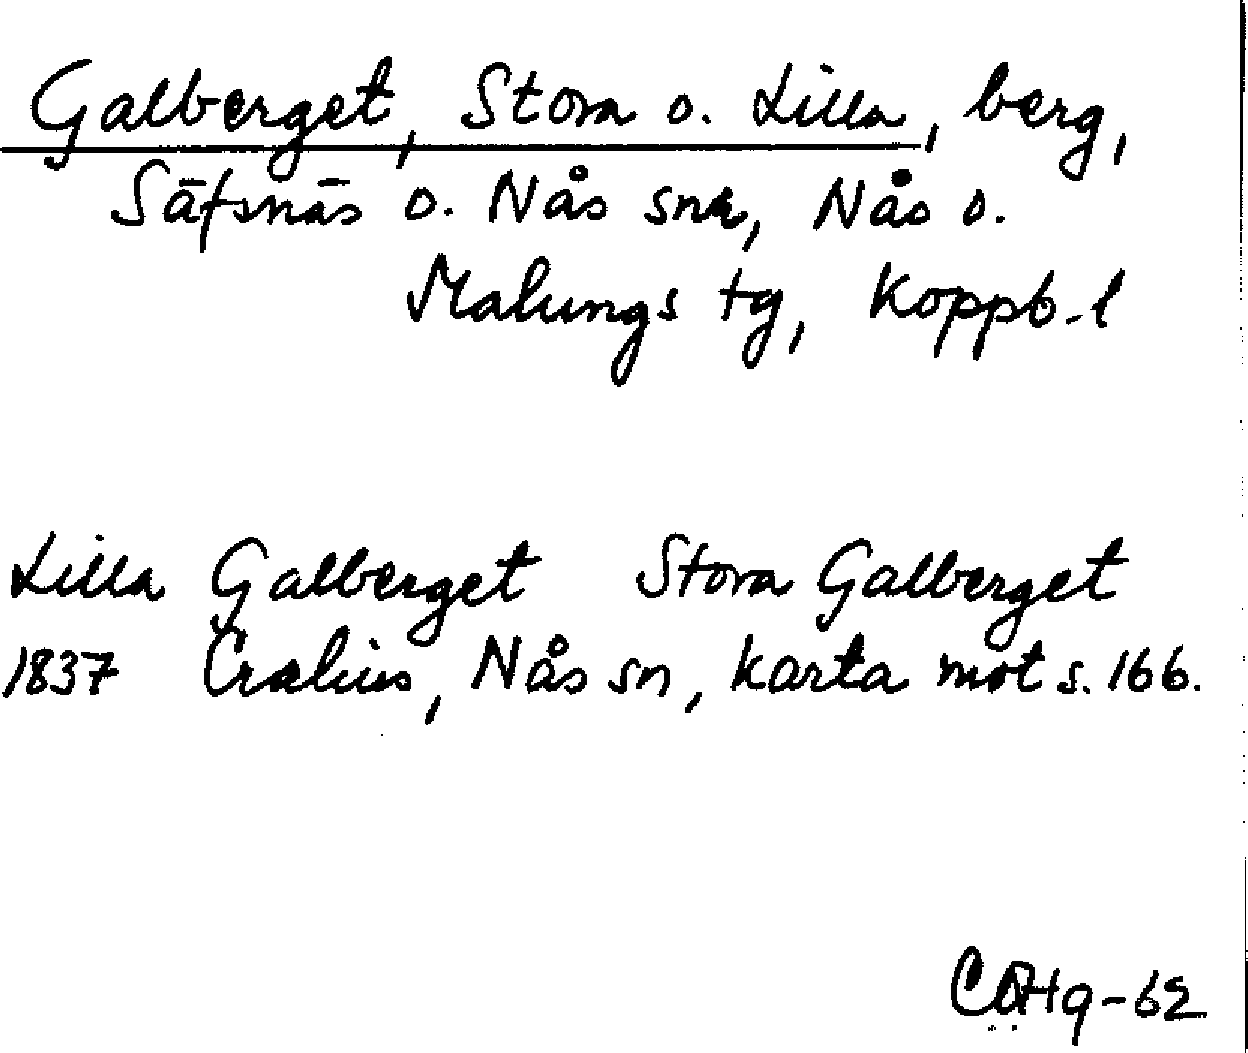 Galberget, Stora o. Lilla, berg,
Säfsnäs o. Nås snr, Nås o.
Malungs tg, Koppb. l
Lilla Galberget Stora Galberget
1837 Cralius, Nås sn, karta mot s. 166.